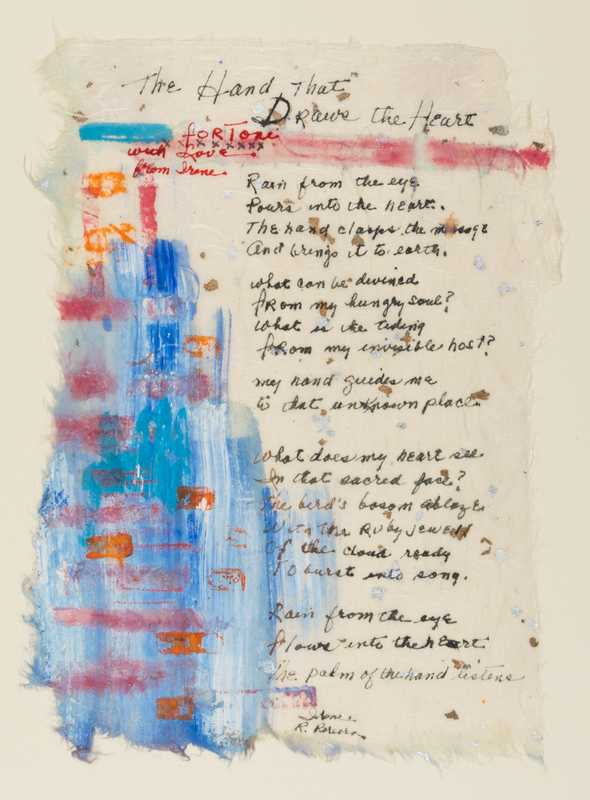 The Hand That
Draws the Heart
for Toni
with Love
from Irene
Rain from the eye
Pours into the heart.
The hand clasps the message
And brings it to earth.
what can be divined
from my hungry soul?
What is the tiding
from my invisible host?
my hand guides me
to that unknown place.
What does my heart see
In that sacred face?
The bird's bosom ablaze
With the Ruby jewell
Of the cloud ready
To burst into song.
Rain from the eye
flows into the heart.
The palm of the hand listens
Irene
R. Pereira